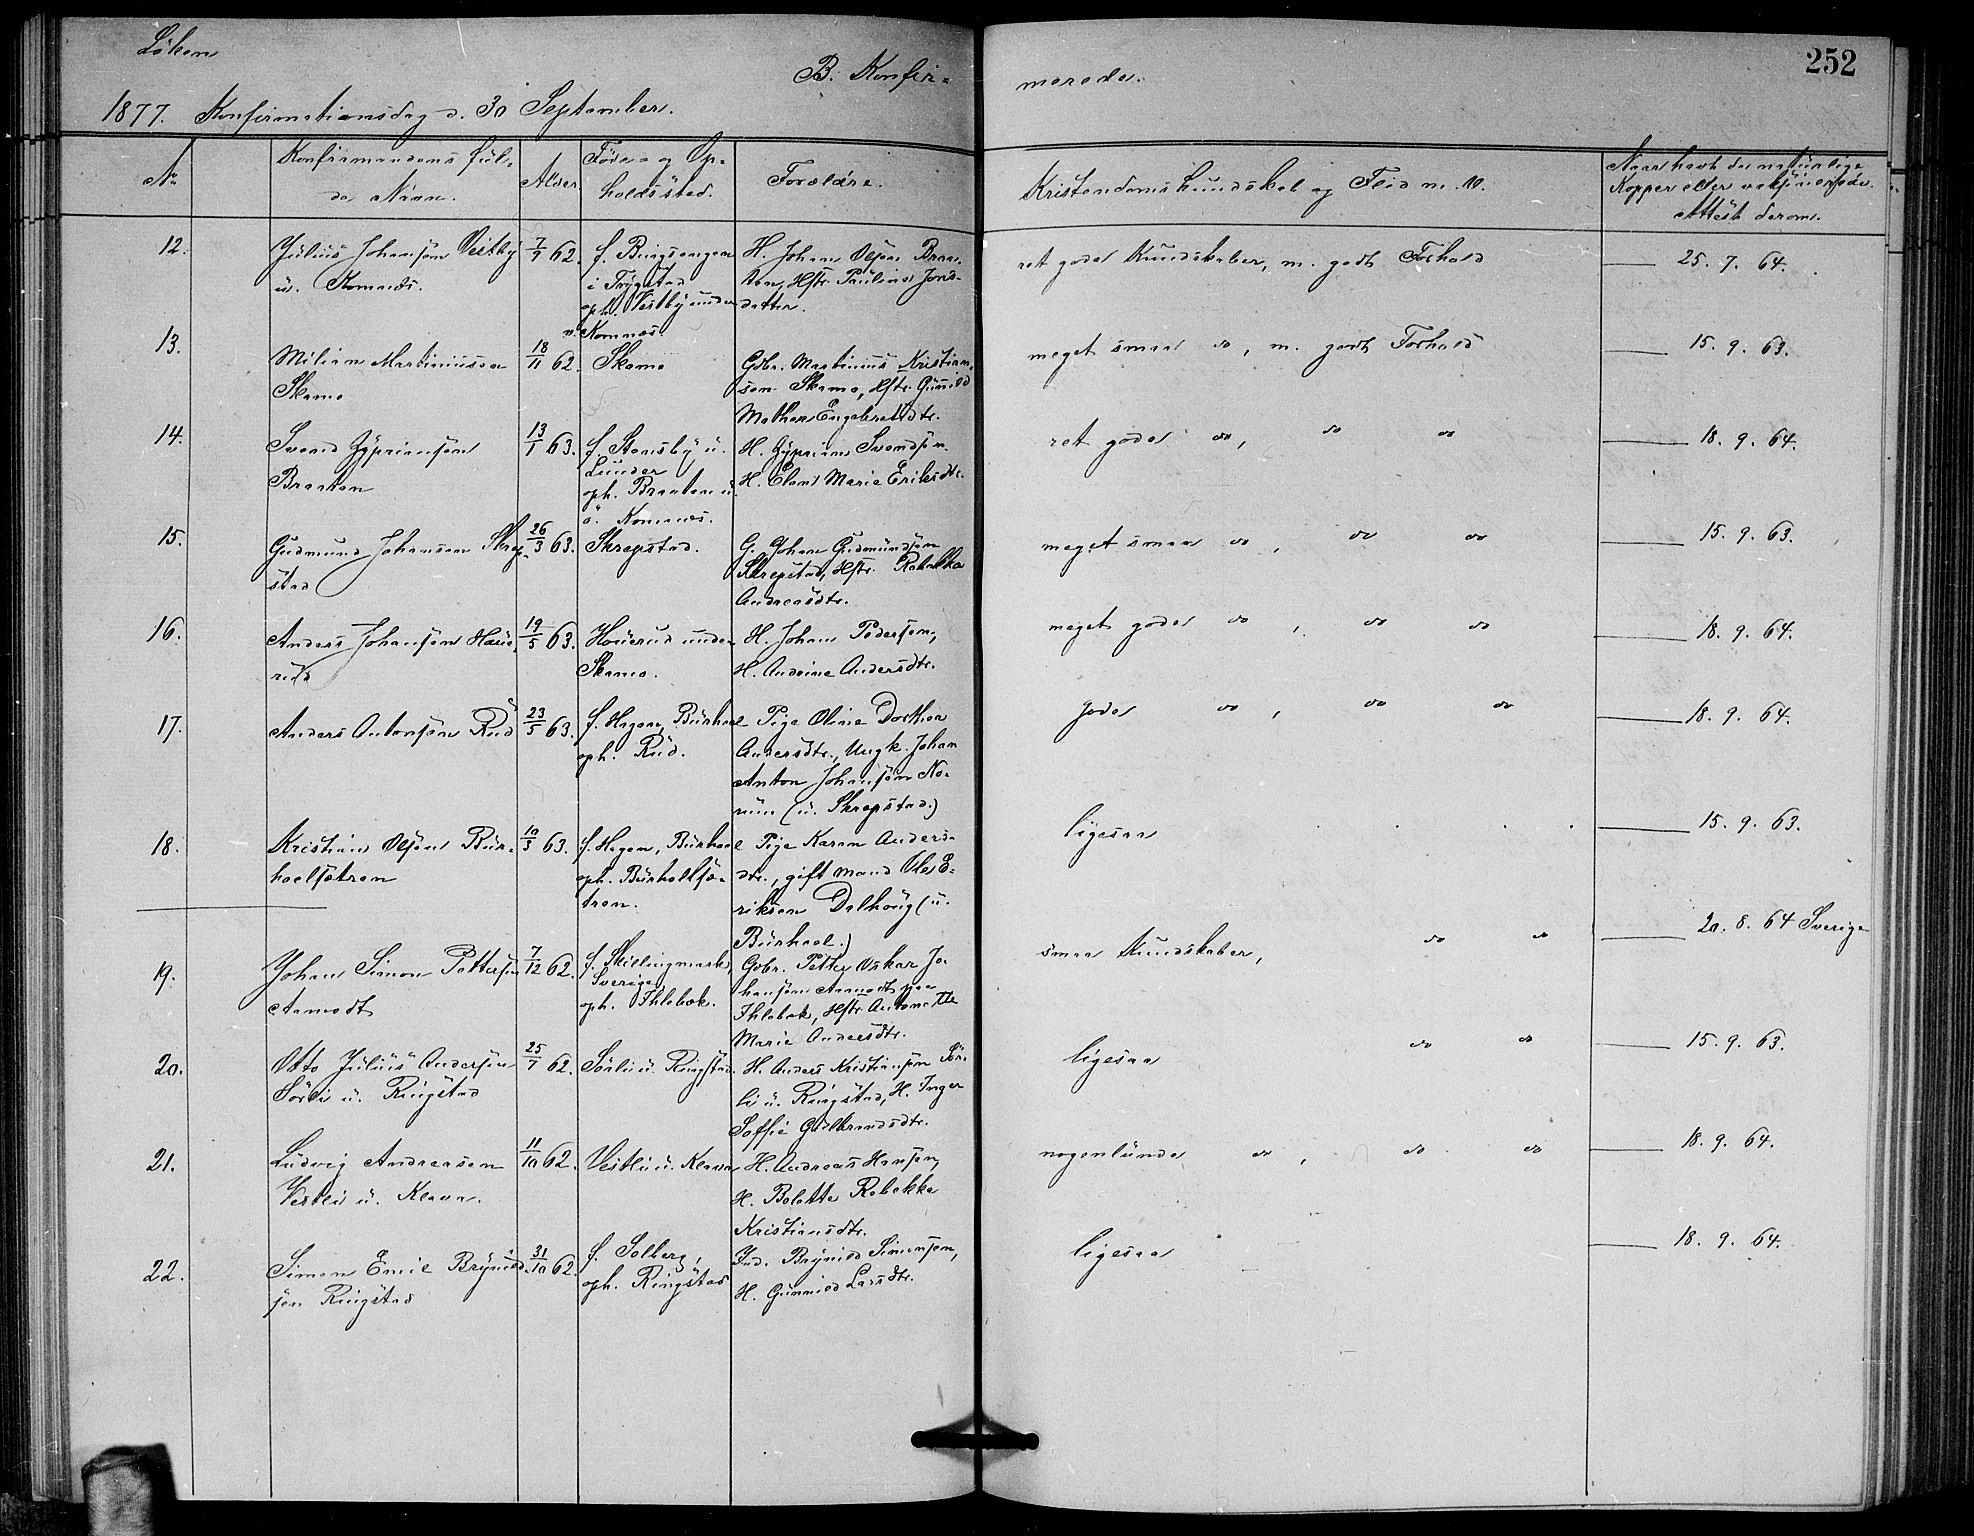 Löken
B. Konfir=
merede.
252
1877. Konfirmationsdag d. 30 September.
No
Konfirmandens ful=
de Navn.
Alder
Føde= og Op=
holdssted.
Forældre.
Kristendomskundskab og Flid m. M.
Naar havt de naturlige
Kopper eller vaksineret
Attest derom.
12.
Julius Johansen Vestby
u. Komnæs.
7/7 62.
f. Bingsengen
i Trygstad
oph. Vestby under
v. Komnæs
H. Johan Olsen Braa=
ten, Hstr. Pauline Jons=
datter.
ret gode Kundskaber, m. godt Forhold
25. 7. 64.
13.
Milian Martiniussen
Skamo
18/11 62.
Skamo
Gdbr. Martinius Kristian=
sen Skamo, Hstr. Gunild
Mathea Engebretsdtr.
meget smaa do, m. godt Forhold
15. 9. 63.
14.
Svend Zypriansen
Braaten
13/1 63.
f. Stensby u.
Lunder
oph. Braaten u
ö. Komnæs.
H. Zyprian Svendsen.
H. Eleni Marie Eriksdtr.
ret gode do, do do
18. 9. 64.
15.
Gudmund Johansen Skrep=
stad
26/3 63.
Skrepstad.
G. Johan Gudmundsen
Skrepstad, Hstr. Rebekka
Andreasdtr.
meget smaa do, do do
15. 9. 63.
16.
Anders Johansen Haue=
rud
19/5 63.
Houerud under
Skamo.
H. Johan Pedersen,
H. Andrine Andersdtr.
meget gode do, do do
18. 9. 64.
17.
Anders Antonsen Rud
23/5 63.
f. Hagen, Burhoel
oph. Rud.
Pige Oline Dorthea
Andersdtr., Ungk. Johan
Anton Johansen No=
rum (u. Skrepstad.)
gode do, do do
18. 9. 64.
18.
Kristian Olsen Bur=
hoelsætren
10/3 63.
f. Hagen, Burhoel
oph. Burhollsæ=
tren.
Pige Karen Anders=
dtr., gift Mand Ole E=
riksen Dalhoug (u.
Burhoel.)
ligesaa
15. 9. 63.
19.
Johan Simon Pettersen
Aamodt
7/12 62.
f. Skillingmark,
Sverige,
oph. Ihlebæk.
Gdbr. Petter Oskar Jo=
hansen Aamodt paa
Ihlebæk, Hstr. Antonette
Marie Andersdtr.
smaa Kundskaber, do do
20. 8. 64 Sverige
20.
Otto Julius Andersen
Sörli u. Ringstad
25/7 62.
Sörli u. Ringstad.
H. Anders Kristiansen Sör=
li u. Ringstad, H. Inger
Soffie Gulbrandsdtr.
ligesaa do do
15. 9. 63.
21.
Ludvig Andreasen
Vestli u. Klavn.
11/10 62.
Vestli u. Klavn
H. Andreas Hansen,
H. Bolette Rebekka
Kristiansdtr.
nogenlunde do, do do
18. 9. 64.
22.
Simon Emil Brynild=
sen Ringstad
31/10 62.
f. Solberg,
oph. Ringstad
Ind. Brynild Simensen,
H. Gunnild Larsdtr.
ligesaa
18. 9. 64.